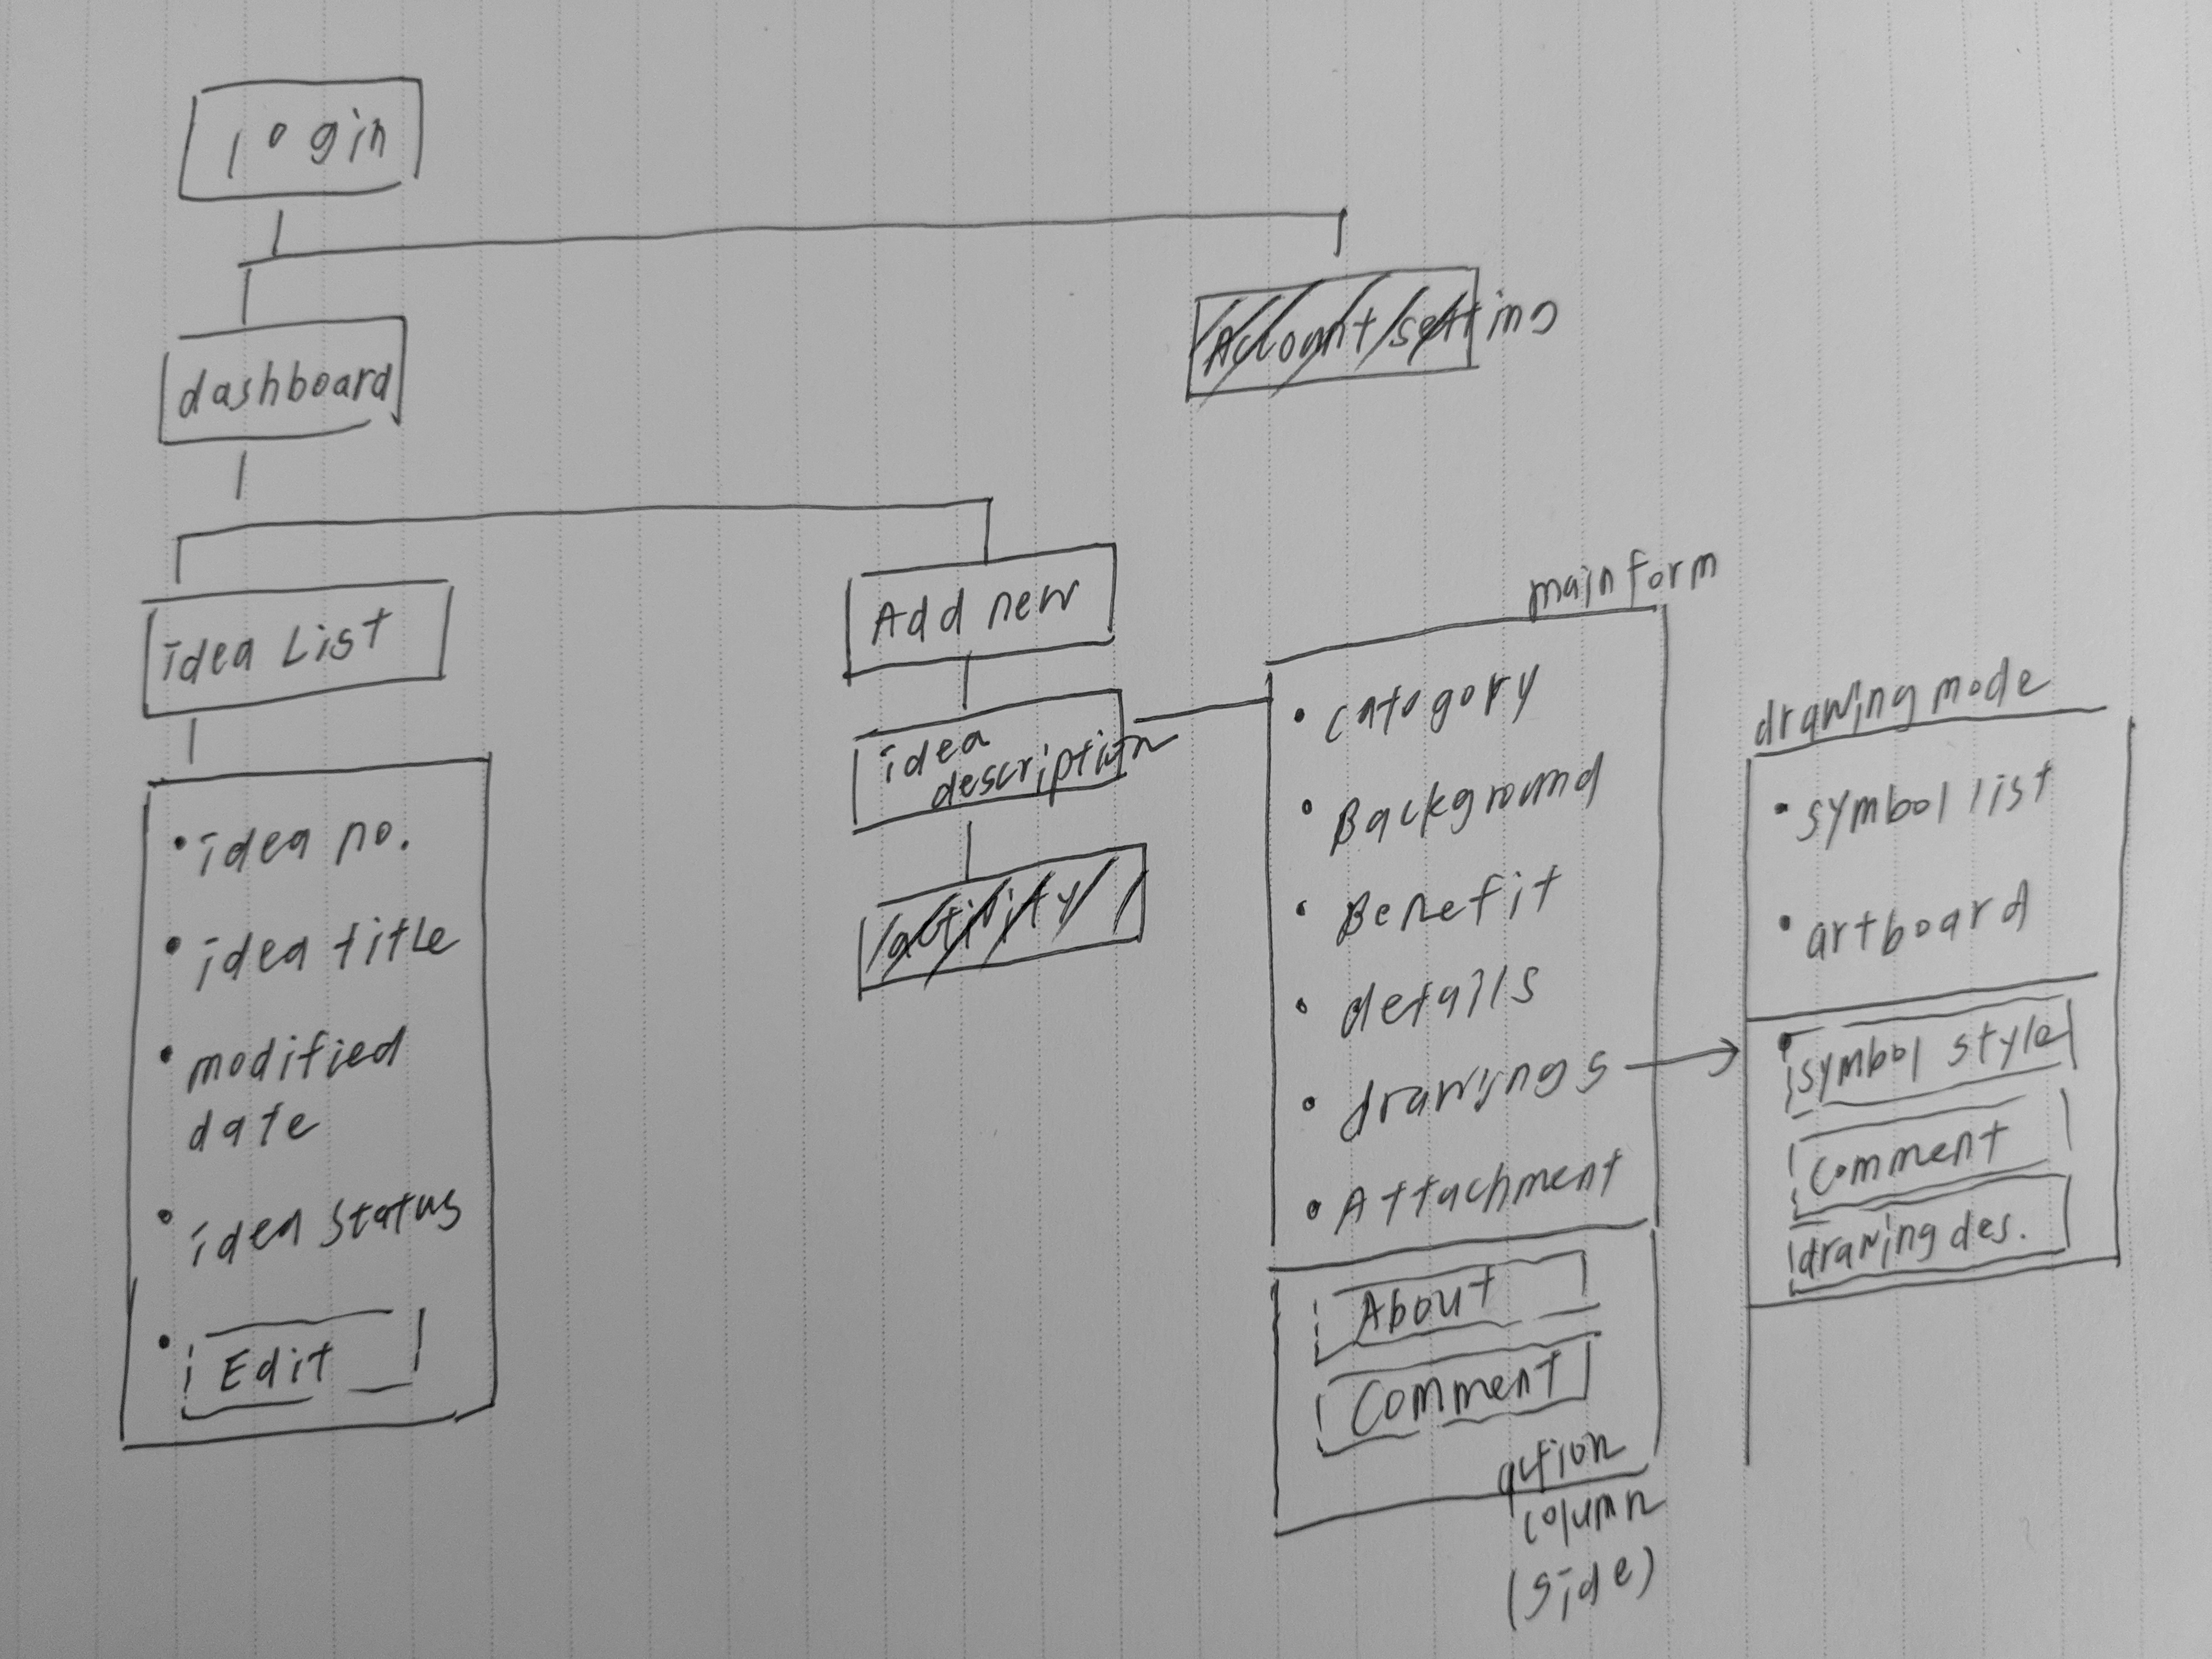 login
Account setting
dashboard
idea List
• idea no.
• idea title
• modified
date
• idea status
• Edit
Add new
idea
description
activity
main form
• category
• Background
• Benefit
• details
• drawings
• Attachment
About
Comment
action
column
(side)
drawing mode
• symbol list
• artboard
• symbol style
Comment
drawing des.